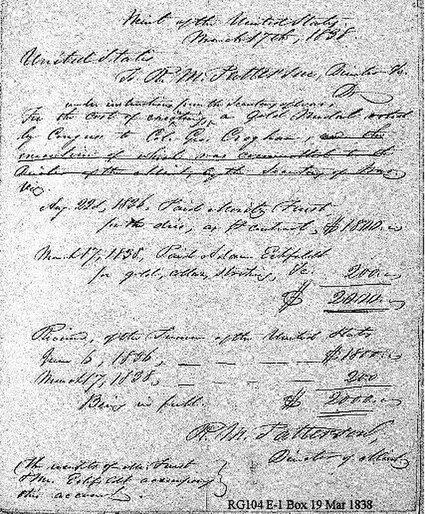 Mint of the United States,
March 17th, 1838
United States
To R. M. Patterson, Director &c.
Dr
under instructions from the Secretary of War,
For the cost of executing a Gold Medal voted
by Congress to Col. Geo. Croghan, and the
execution of which was committed to the
Director of the Mint, by the Secretary of War
viz
Aug. 22d, 1836. Paid Moritz Furst
for the dies, as pr contract, $1800.
March 17, 1838, Paid Adam Eckfeldt
for gold, alloy, striking, &c. 200.
$ 2000.
Received, of the Treasurer of the United States
June 6, 1836, $1800.
March 17, 1838, 200
Being in full. $ 2000.
R. M. Patterson,
Director of Mint
(The receipts of Mr. Furst
& Mr. Eckfeldt accompany
this account.)
RG104 E-1 Box 19 Mar 1838